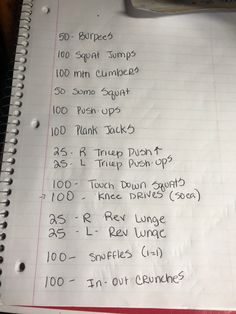 50 - Burpees
100 Squat Jumps
100 mtn Climbers
50 Sumo Squat
100 Push ups
100 Plank Jacks
25 - R Tricep Push ↑
25 - L Tricep Push-ups
100 - Touch Down Squats
→ 100 - Knee Drives (50ea)
25 - R Rev Lunge
25 - L - Rev Lunge
100 - Shuffles (1=1)
100 - In-Out Crunches